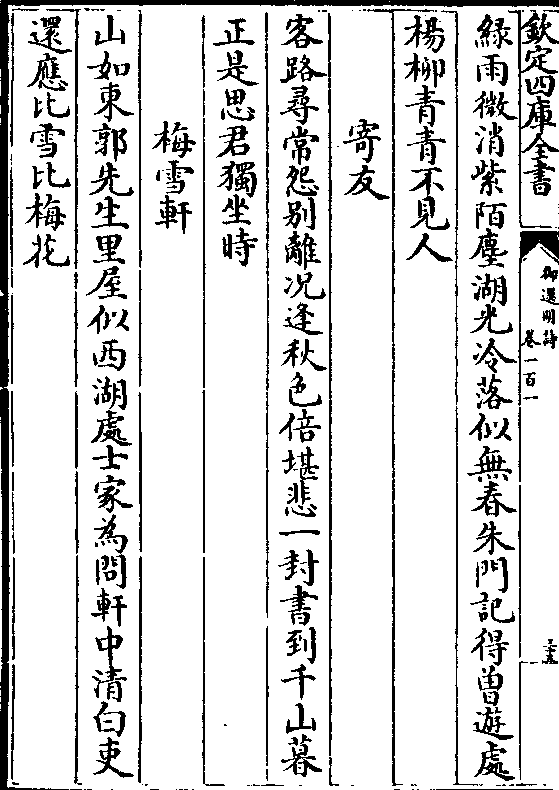 欽定四庫全書
御選明詩
卷一百一
三十五
緑雨微消紫陌塵湖光冷落似無春朱門記得曾遊處
楊柳青青不見人
寄友
客路尋常怨别離况逢秋色倍堪悲一封書到千山暮
正是思君獨坐時
梅雪軒
山如東郭先生里屋似西湖處士家為問軒中清白吏
還應比雪比梅花